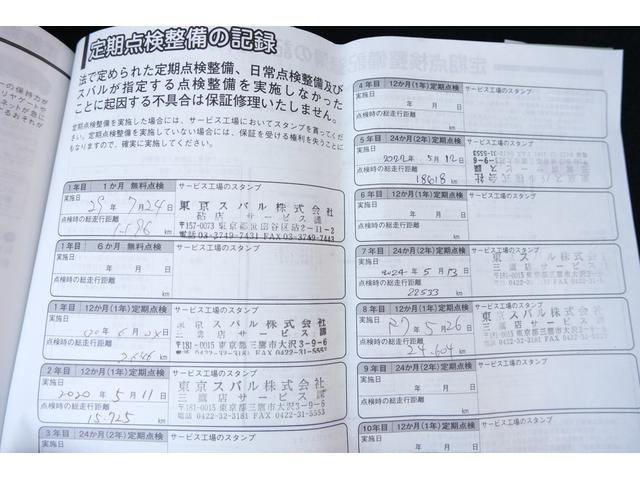 定期点検整備の記録
法で定められた定期点検整備、日常点検整備及び
スバルが指定する点検整備を実施しなかった
ことに起因する不具合は保証修理いたしません。
定期点検整備を実施した場合には、サービス工場においてスタンプを貰ってくだ
さい。定期点検整備を実施していない場合には、保証を受ける権利を失うことに
もなりますので、確実に実施してください。
1年目 1か月 無料点検 サービス工場のスタンプ
実施日
29年 7月24日
点検時の総走行距離
東京スバル株式会社
砧店 サービス課
〒157-0073 東京都世田谷区砧2-11-2
電話 03-3749-7431 FAX 03-3749-7443
1年目 6か月 無料点検 サービス工場のスタンプ
実施日
年 月 日
点検時の総走行距離
km
1年目 12か月(1年)定期点検 サービス工場のスタンプ
実施日
点検時の総走行距離
km
東京スバル株式会社
三鷹店 サービス課
〒181-0015 東京都三鷹市大沢3-9-6
電話 0422-32-3181 FAX 0422-31-5553
2年目 24か月(2年)定期点検 サービス工場のスタンプ
実施日
2020年 5月 11日
点検時の総走行距離
15.725 km
東京スバル株式会社
三鷹店 サービス課
〒181-0015 東京都三鷹市大沢3-9-6
電話 0422-32-3181 FAX 0422-31-5553
3年目 24か月(2年)定期点検 サービス工場のスタンプ
実施日
4年目 12か月(1年)定期点検 サービス工場のスタンプ
実施日
年 月 日
点検時の総走行距離
km
5年目 24か月(2年)定期点検 サービス工場のスタンプ
実施日
2022年 5月 12日
点検時の総走行距離
18618 km
6年目 12か月(1年)定期点検 サービス工場のスタンプ
実施日
年 月 日
点検時の総走行距離
km
7年目 24か月(2年)定期点検 サービス工場のスタンプ
実施日
2024年 5月 13日
点検時の総走行距離
22533 km
8年目 12か月(1年)定期点検 サービス工場のスタンプ
実施日
R7年 5月 26日
点検時の総走行距離
24.604 km
9年目 24か月(2年)定期点検 サービス工場のスタンプ
実施日
年 月 日
点検時の総走行距離
km
10年目 12か月(1年)定期点検 サービス工場のスタンプ
実施日
年 月 日